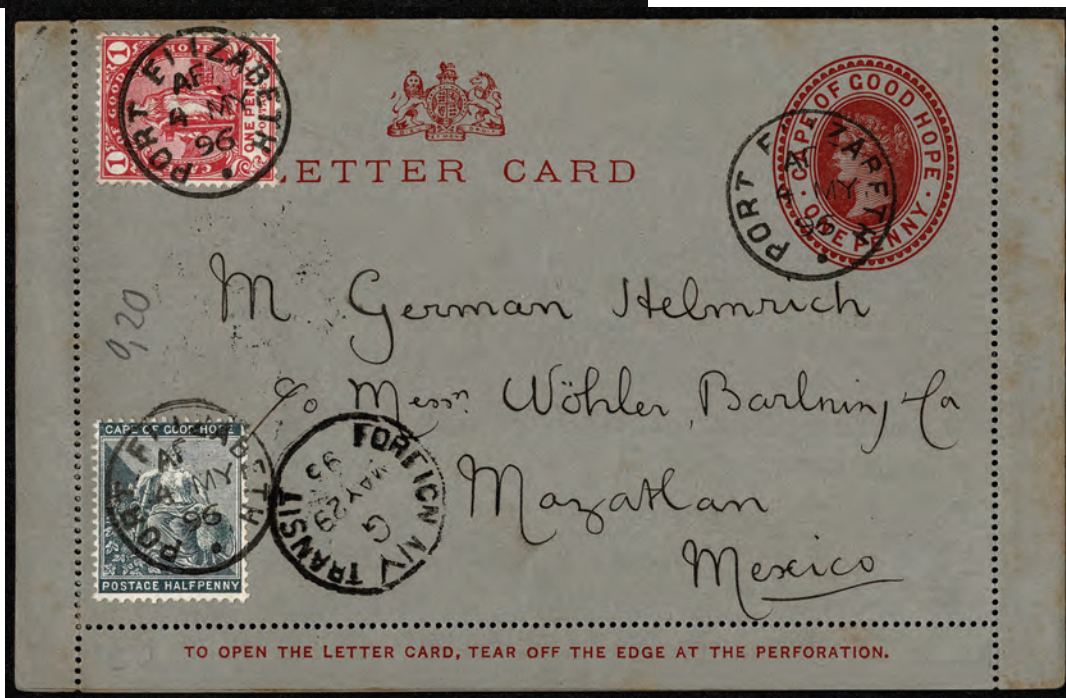 1 OF GOOD HOPE 1
ONE PEN
PORT ELIZABETH
AF
4 MY
96
LETTER CARD
CAPE OF GOOD HOPE
ONE PENNY
PORT E ZABETH
MY
96
M. German Helmrich
0,20
c/o Messrs. Wöhler, Bartning & Co
Mazatlan
Mexico
CAPE OF GOOD HOPE
POSTAGE HALFPENNY
PORT ELIZABETH
AF
4 MY
96
FOREIGN TRANSIT
G
MAY 29
TO OPEN THE LETTER CARD, TEAR OFF THE EDGE AT THE PERFORATION.